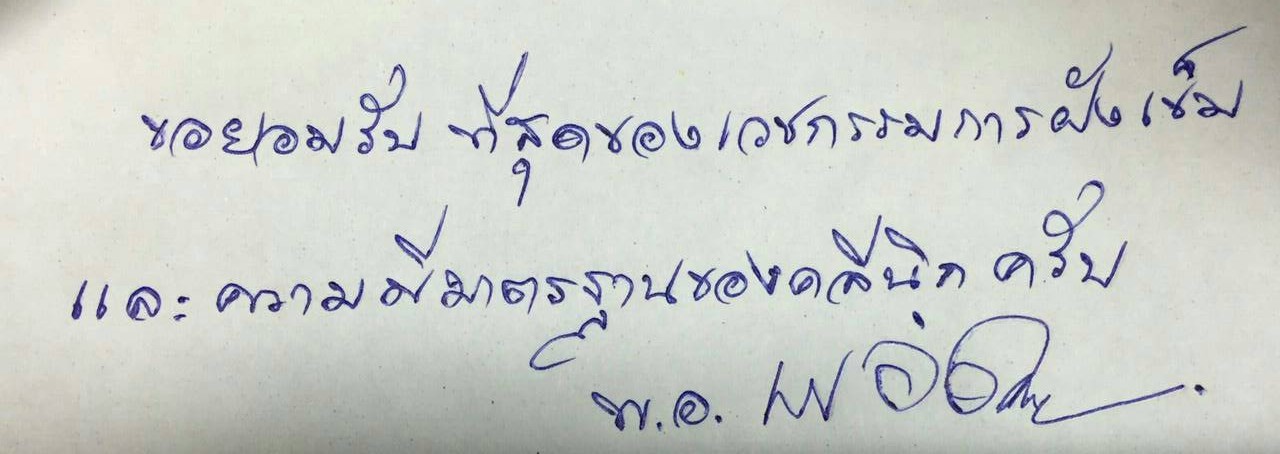 ขอยอมรับ ที่สุดของเวชกรรมการฝังเข็ม
และความมีมาตรฐานของคลีนิค ครับ
พ.อ.